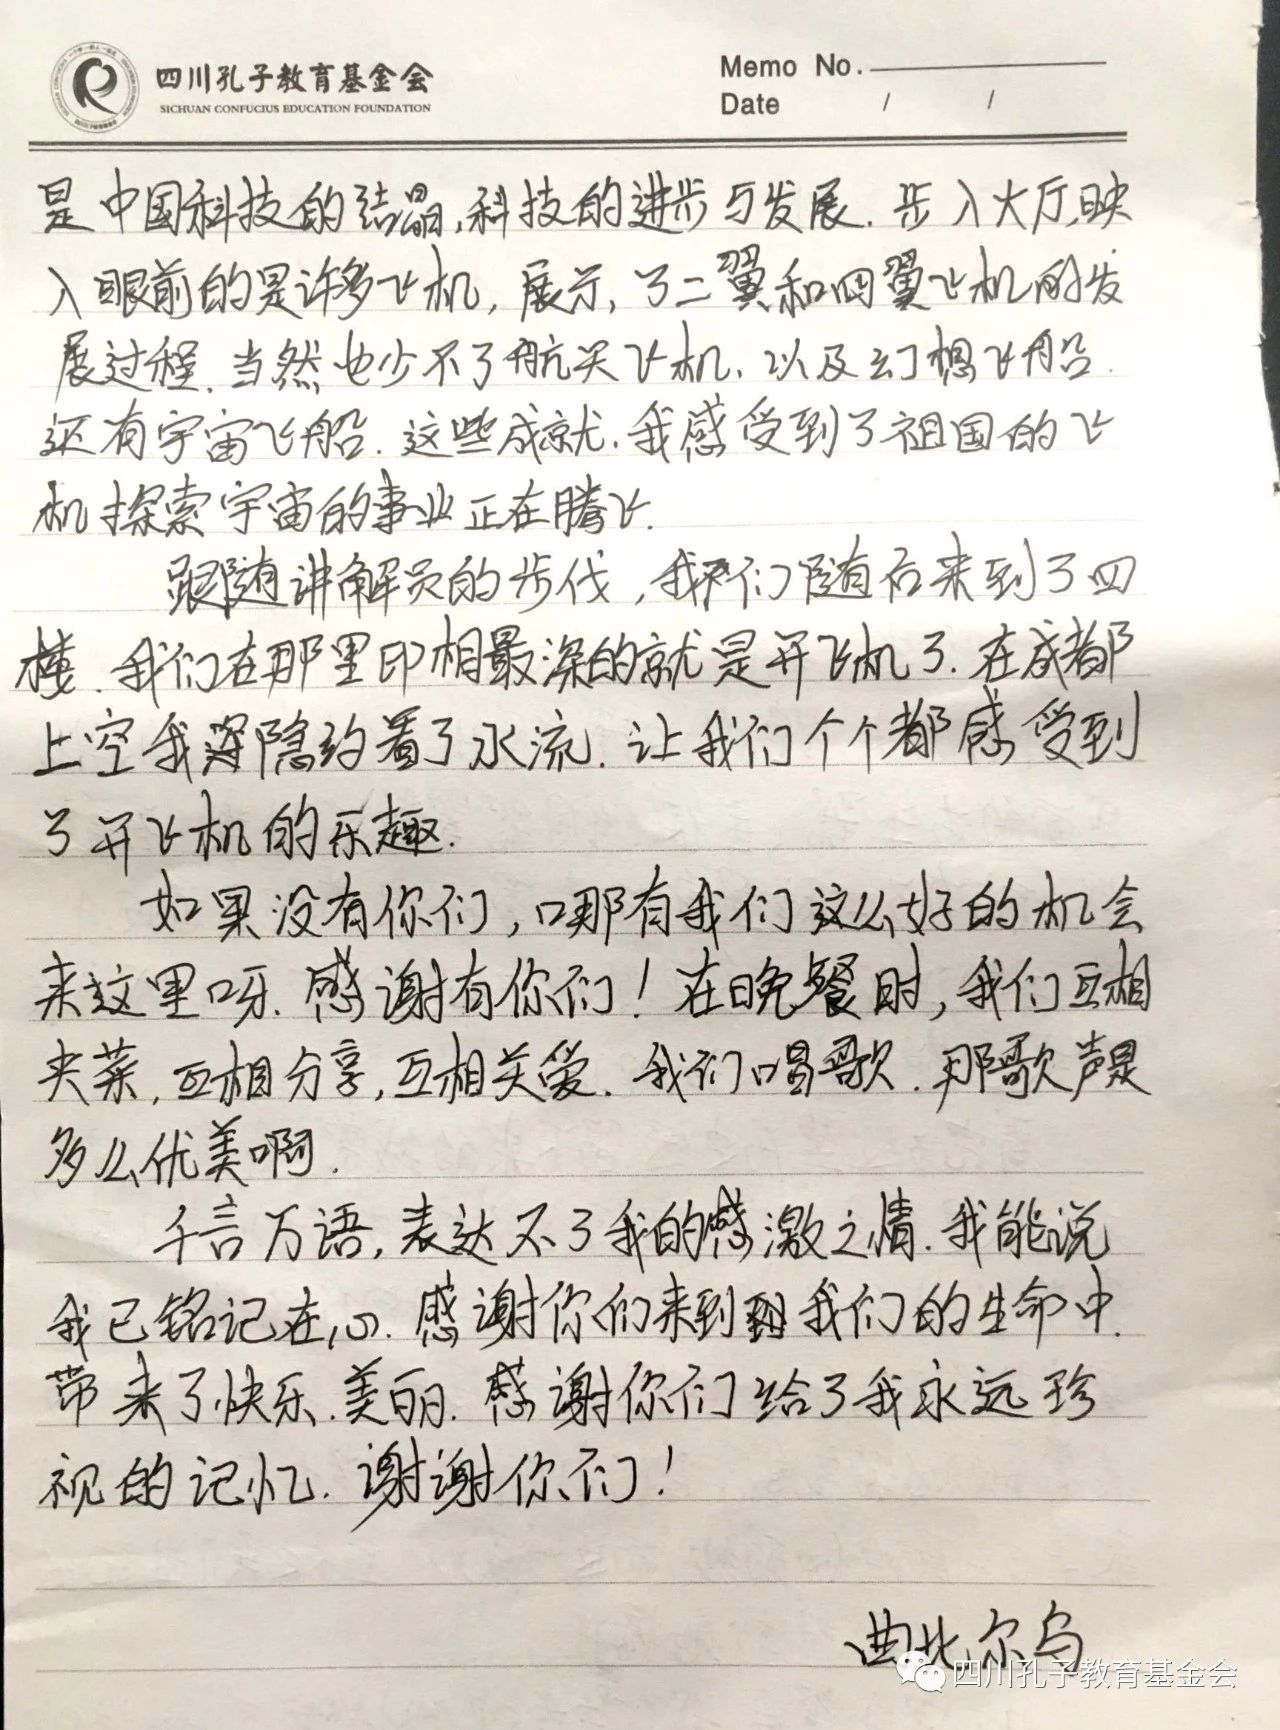 四川孔子教育基金会
SICHUAN CONFUCIUS EDUCATION FOUNDATION
Memo No.
Date / /
是中国科技的结晶,科技的进步与发展.步入大厅,映
入眼前的是许多飞机,展示,了二翼和四翼飞机的发
展过程.当然也少不了航天飞机.以及幻想飞船.
还有宇宙飞船.这些成就.我感受到了祖国的飞
机探索宇宙的事业正在腾飞.
跟随讲解员的步伐,我们随后来到了四
楼.我们在那里印相最深的就是开飞机了.在成都
上空我隐约看了水流.让我们个个都感受到
了开飞机的乐趣.
如果没有你们,哪有我们这么好的机会
来这里呀.感谢有你们!在晚餐时,我们互相
夹菜,互相分享,互相关爱.我们唱歌.那歌声是
多么优美啊.
千言万语,表达不了我的感激之情.我能说
我已铭记在心.感谢你们来到我们的生命中.
带来了快乐.美丽.感谢你们给了我永远珍
视的记忆.谢谢你们!
曲比尔乌
四川孔子教育基金会